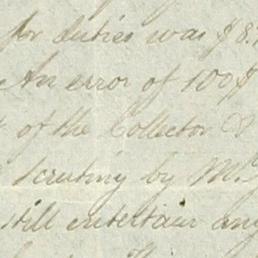 for duties was $8
An error of 100$
of the Collector &
scrutiny by Mr
still entertain any